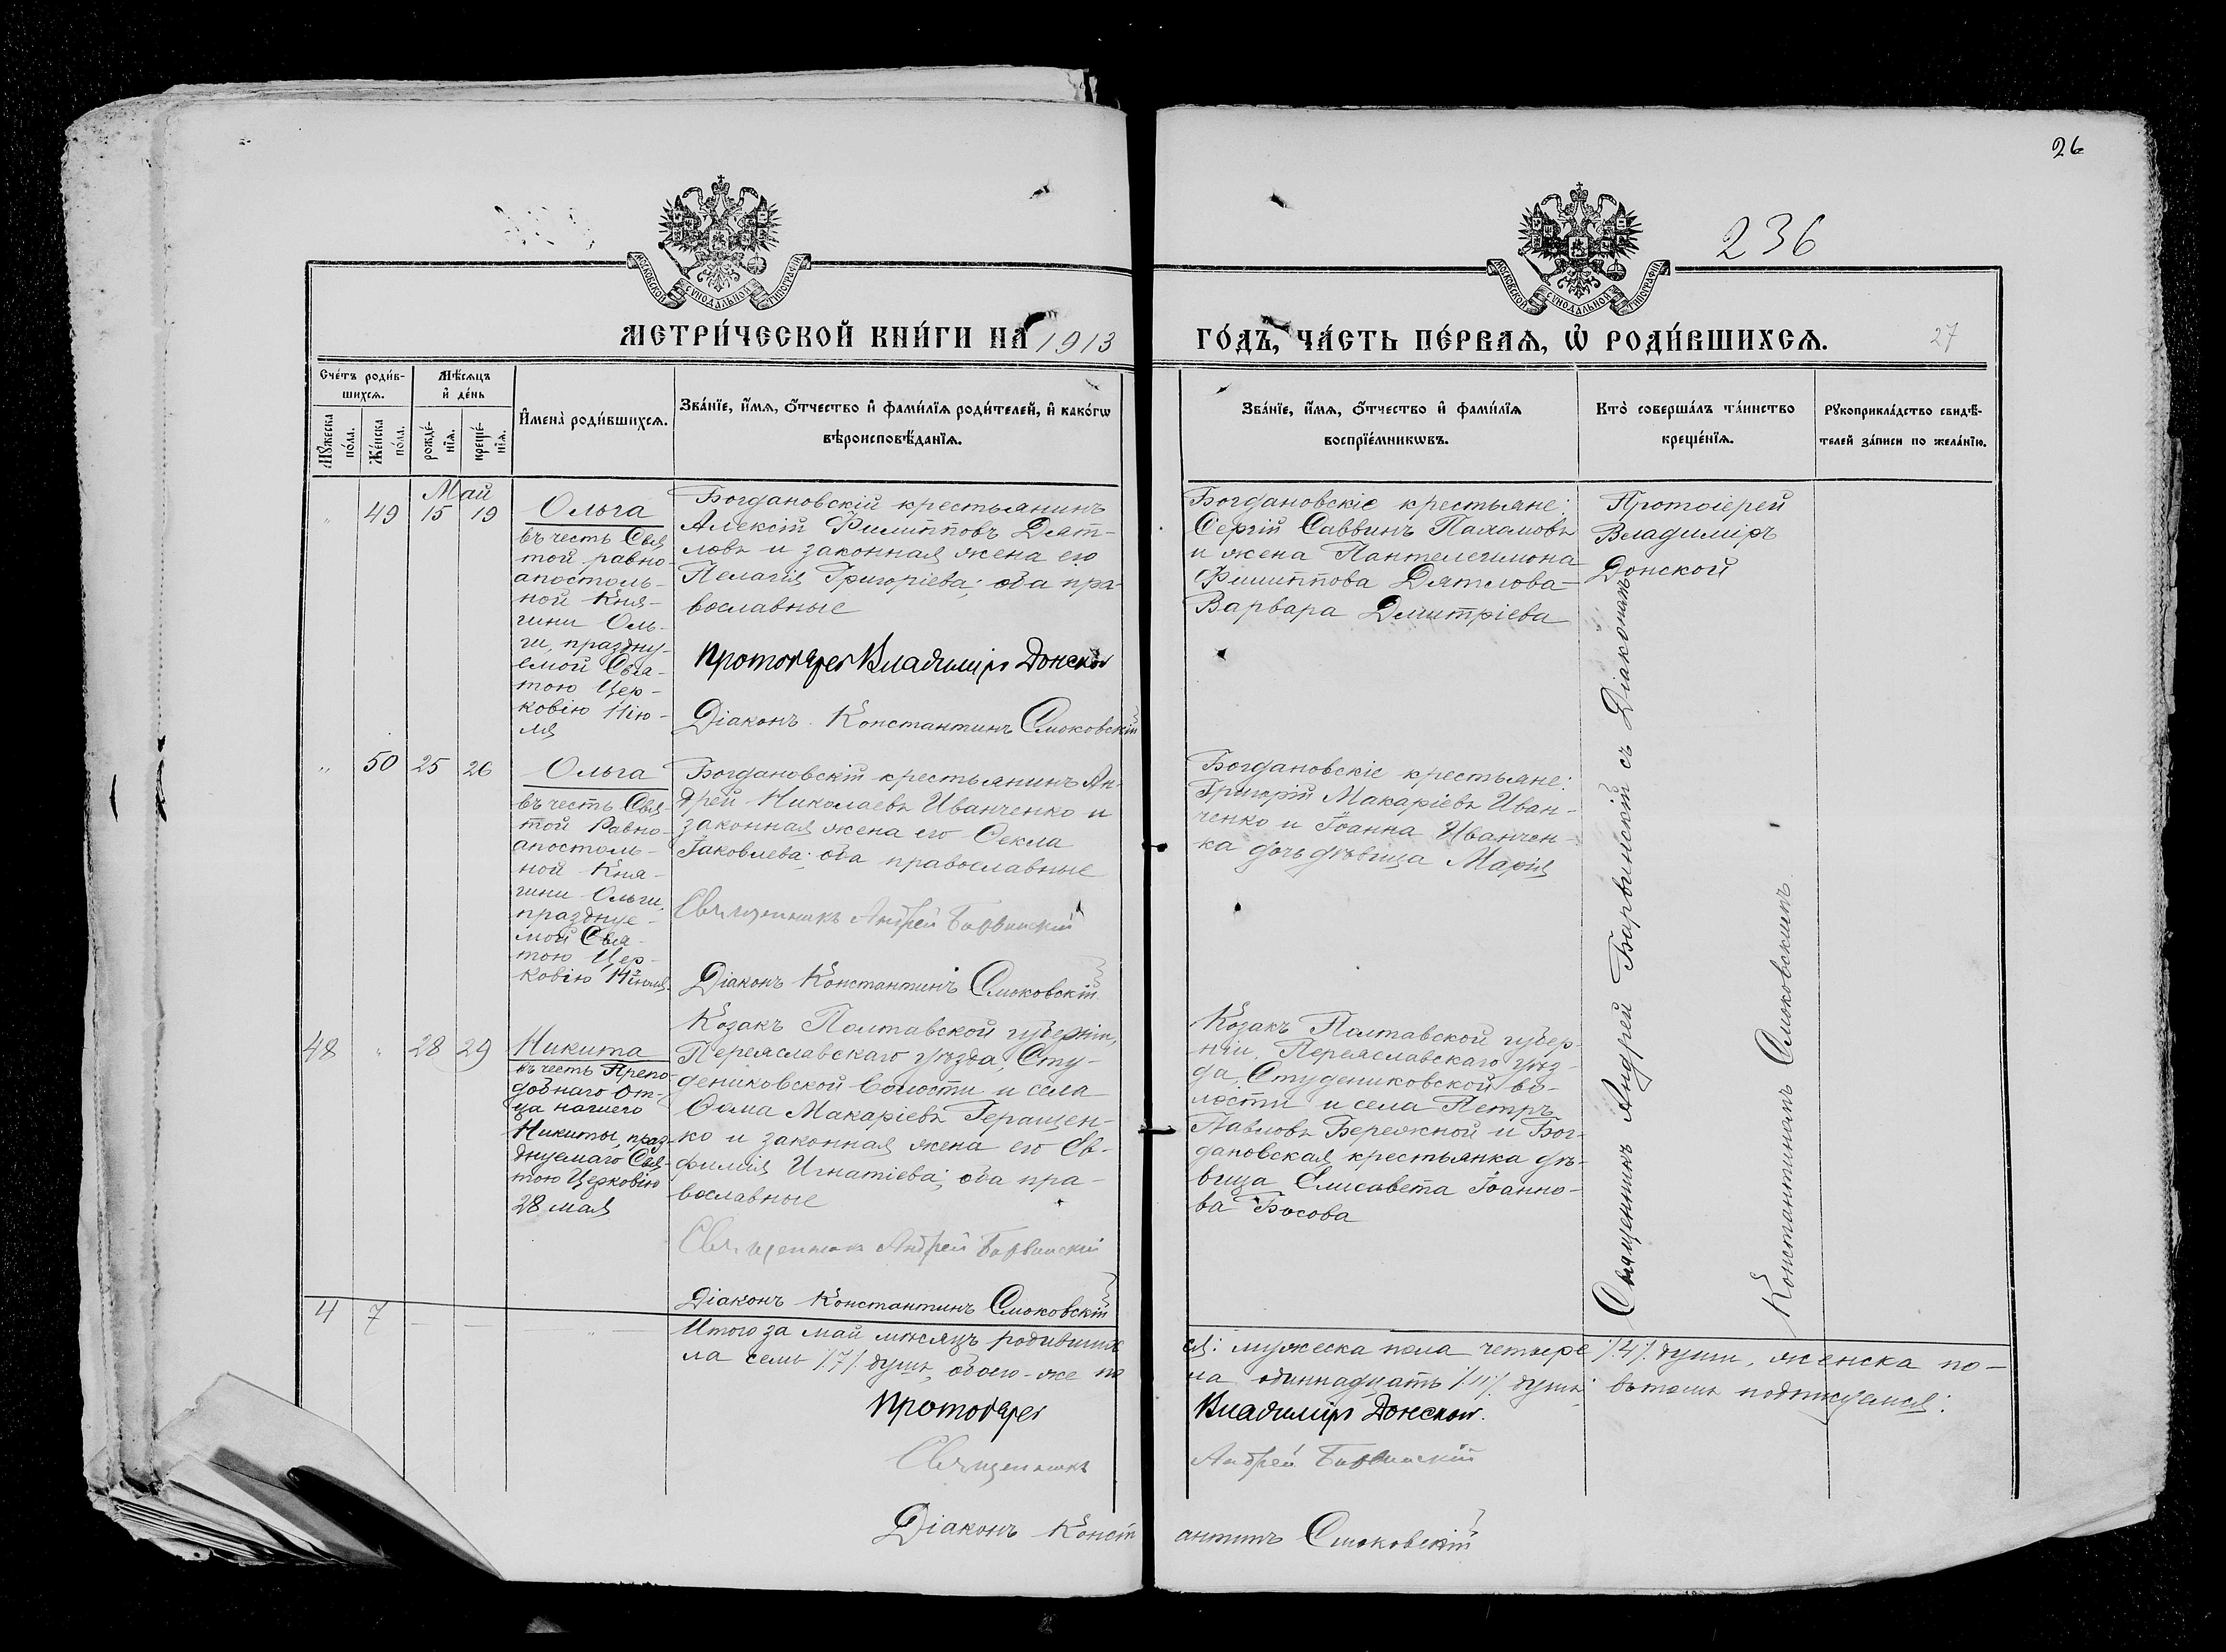 26
236
27
МОСКОВСКОЙ СУНОДАЛЬНОЙ ТИПОГРАФІИ
МОСКОВСКОЙ СУНОДАЛЬНОЙ ТИПОГРАФІИ
МЕТРИ́ЧЕСКОЙ КНИ́ГИ НА 1913
ГО́ДЪ, ЧА́СТЬ ПЕ́РВАѦ, Ѡ҆ РОДИ́ВШИХСѦ.
Сче́тъ роди́в-
шихсѧ.
Мꙋжеска
по́ла.
Же́нска
по́ла.
Мѣ́сѧцъ
и҆ де́нь
рожде́-
нїѧ.
креще́-
нїѧ.
И҆мена̀ роди́вшихсѧ.
Зва́нїе, и҆́мѧ, ѻ҆́тчество и҆ фами́лїѧ роди́телей, и҆ како́гѡ
вѣроисповѣ́данїѧ.
Зва́нїе, и҆́мѧ, ѻ҆́тчество и҆ фами́лїѧ
воспрїе́мникѡвъ.
Кто̀ соверша́лъ та́инство
креще́нїѧ.
Рꙋкоприкла́дство свидѣ́-
телей за́писи по жела́нїю.
Май
" 49 15 19
Ольга
въ честь Свя
той равно-
апостоль-
ной Кня-
гини Оль-
ги, праздну-
емой Свя-
тою Цер-
ковію 11 ію-
ля
Богдановскій крестьянинъ
Алексій Филипповъ Дят-
ловъ и законная жена его
Пелагія Григоріева; оба пра-
вославные
Протоіерей Владиміръ Донской
Діаконъ Константинъ Смоковскій
Богдановскіе крестьяне:
Сергій Саввинъ Пахамовъ
и жена Пантелеимона
Филиппова Дятлова-
Варвара Димитріева
Протоіерей
Владиміръ
Донской
" 50 25 26
Ольга
въ честь Свя
той Равно-
апостоль-
ной Кня-
гини Ольги,
праздуе-
мой Свя-
тою Цер-
ковію 11 іюля.
Богдановскій крестьянинъ Ан-
дрей Николаевъ Иванченко и
законная жена его Ѳекла
Іаковлева; оба православные
Священникъ Андрей Барвинскій
Діаконъ Константинъ Смоковскій
Богдановскіе крестьяне:
Григорій Макаріевъ Иван-
ченко и Іоанна Иванчен-
ка дочь дѣвица Марія
48 " 28 29
Никита
въ честь Препо
добнаго От-
ца нашего
Никиты, праз-
днуемаго Свя-
тою Церковію
28 мая
Козакъ Полтавской губерніи,
Переяславскаго уѣзда, Сту-
дениковской волости и села
Ѳома Макаріевъ Геращен-
ко и законная жена его Ев-
фимія Игнатіева; оба пра-
вославные
Священникъ Андрей Барвинскій
Діаконъ Константинъ Смоковскій
Козакъ Полтавской губер-
ніи, Переяславскаго уѣз-
да, Студениковской во-
лости и села Петръ
Павловъ Бережной и Бог-
дановская крестьянка дѣ-
вица Елисавета Іоанно-
ва Босова
Священникъ Андрей Барвинскій съ Діакономъ
Константиномъ Смоковскимъ
4 7
Итого за май мѣсяцъ родивших
ся: мужеска пола четыре /4/ души, женска по-
ла семь /7/ душъ, обоего-же по
ла одиннадцать /11/ душъ; въ томъ подписуемся:
Протоіерей Владиміръ Донской.
Священникъ Андрей Барвинскій
Діаконъ Константинъ Смоковскій